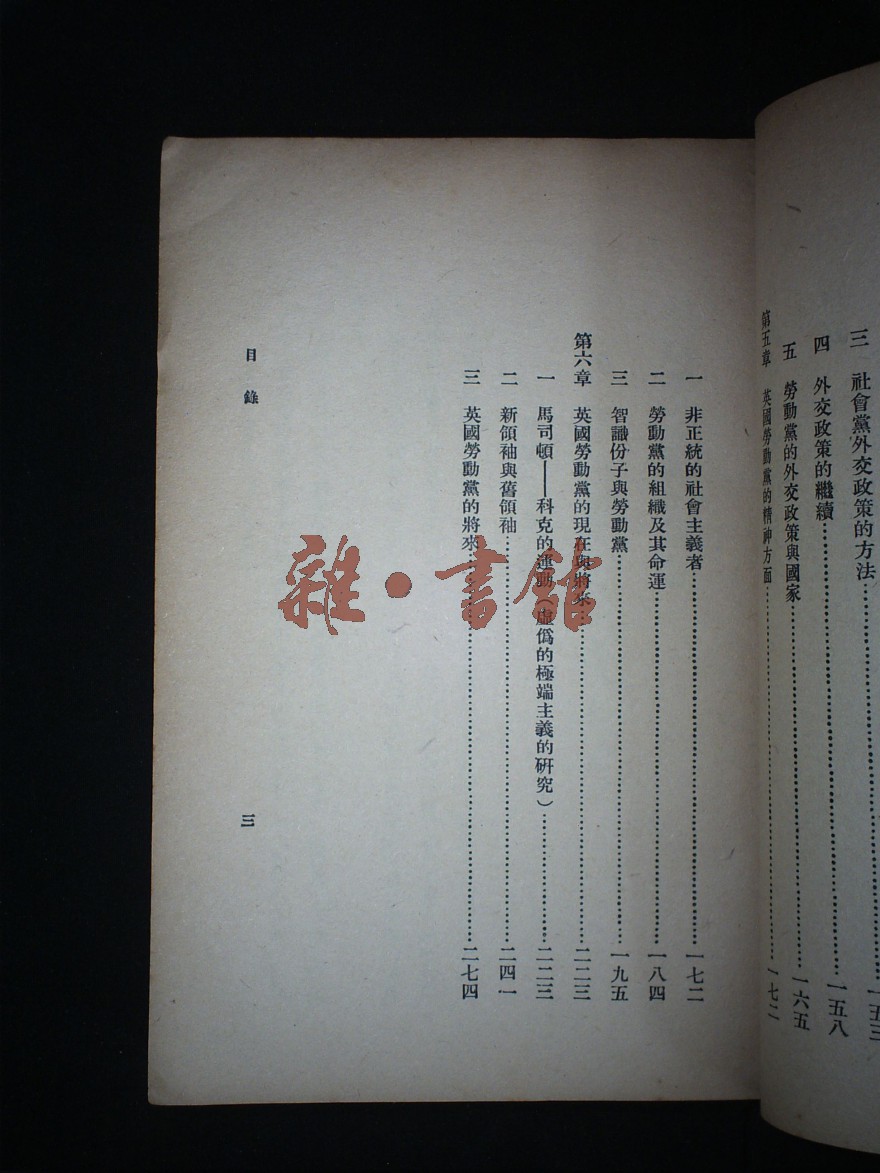 三　社會黨外交政策的方法………一五三
四　外交政策的繼續………一五八
五　勞動黨的外交政策與國家………一六五
第五章　英國勞動黨的精神方面………一七二
一　非正統的社會主義者………一七二
二　勞動黨的組織及其命運………一八四
三　智識份子與勞動黨………一九五
第六章　英國勞動黨的現在與將來………二二三
一　馬司頓——科克的運動（虛僞的極端主義的研究）………二二三
二　新領袖與舊領袖………二四一
三　英國勞動黨的將來………二七四
目錄
三
雜·書館